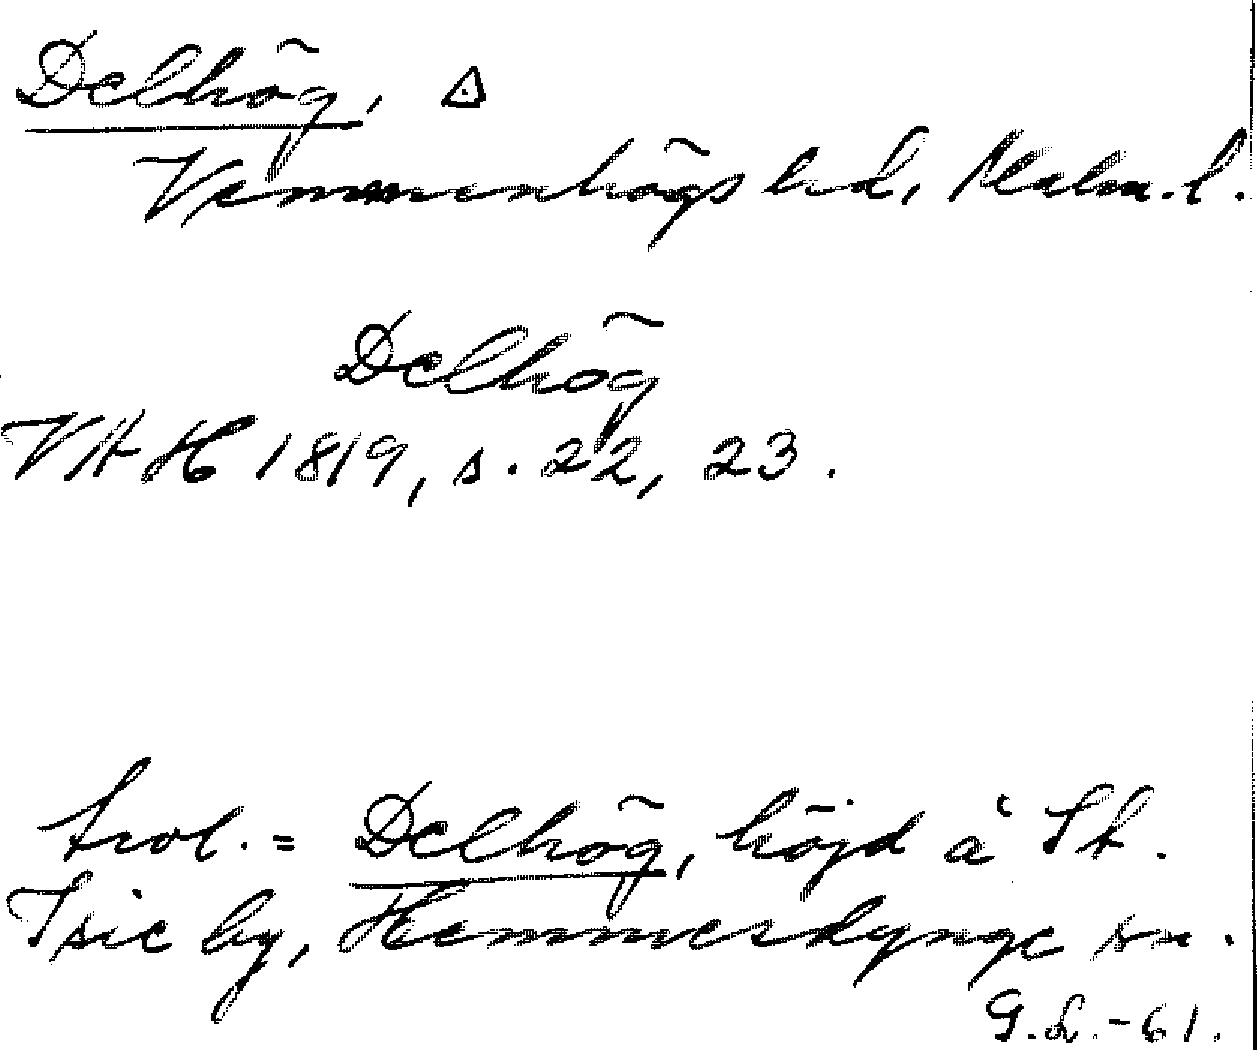 Delhög, △
Vemmenhögs hd, Malm. l.
Delhög
VAH 1819, s. 22, 23.
Trol. = Delhög, höjd å St.
Isie by, Hemmesdynge sn.
G.L.-61.